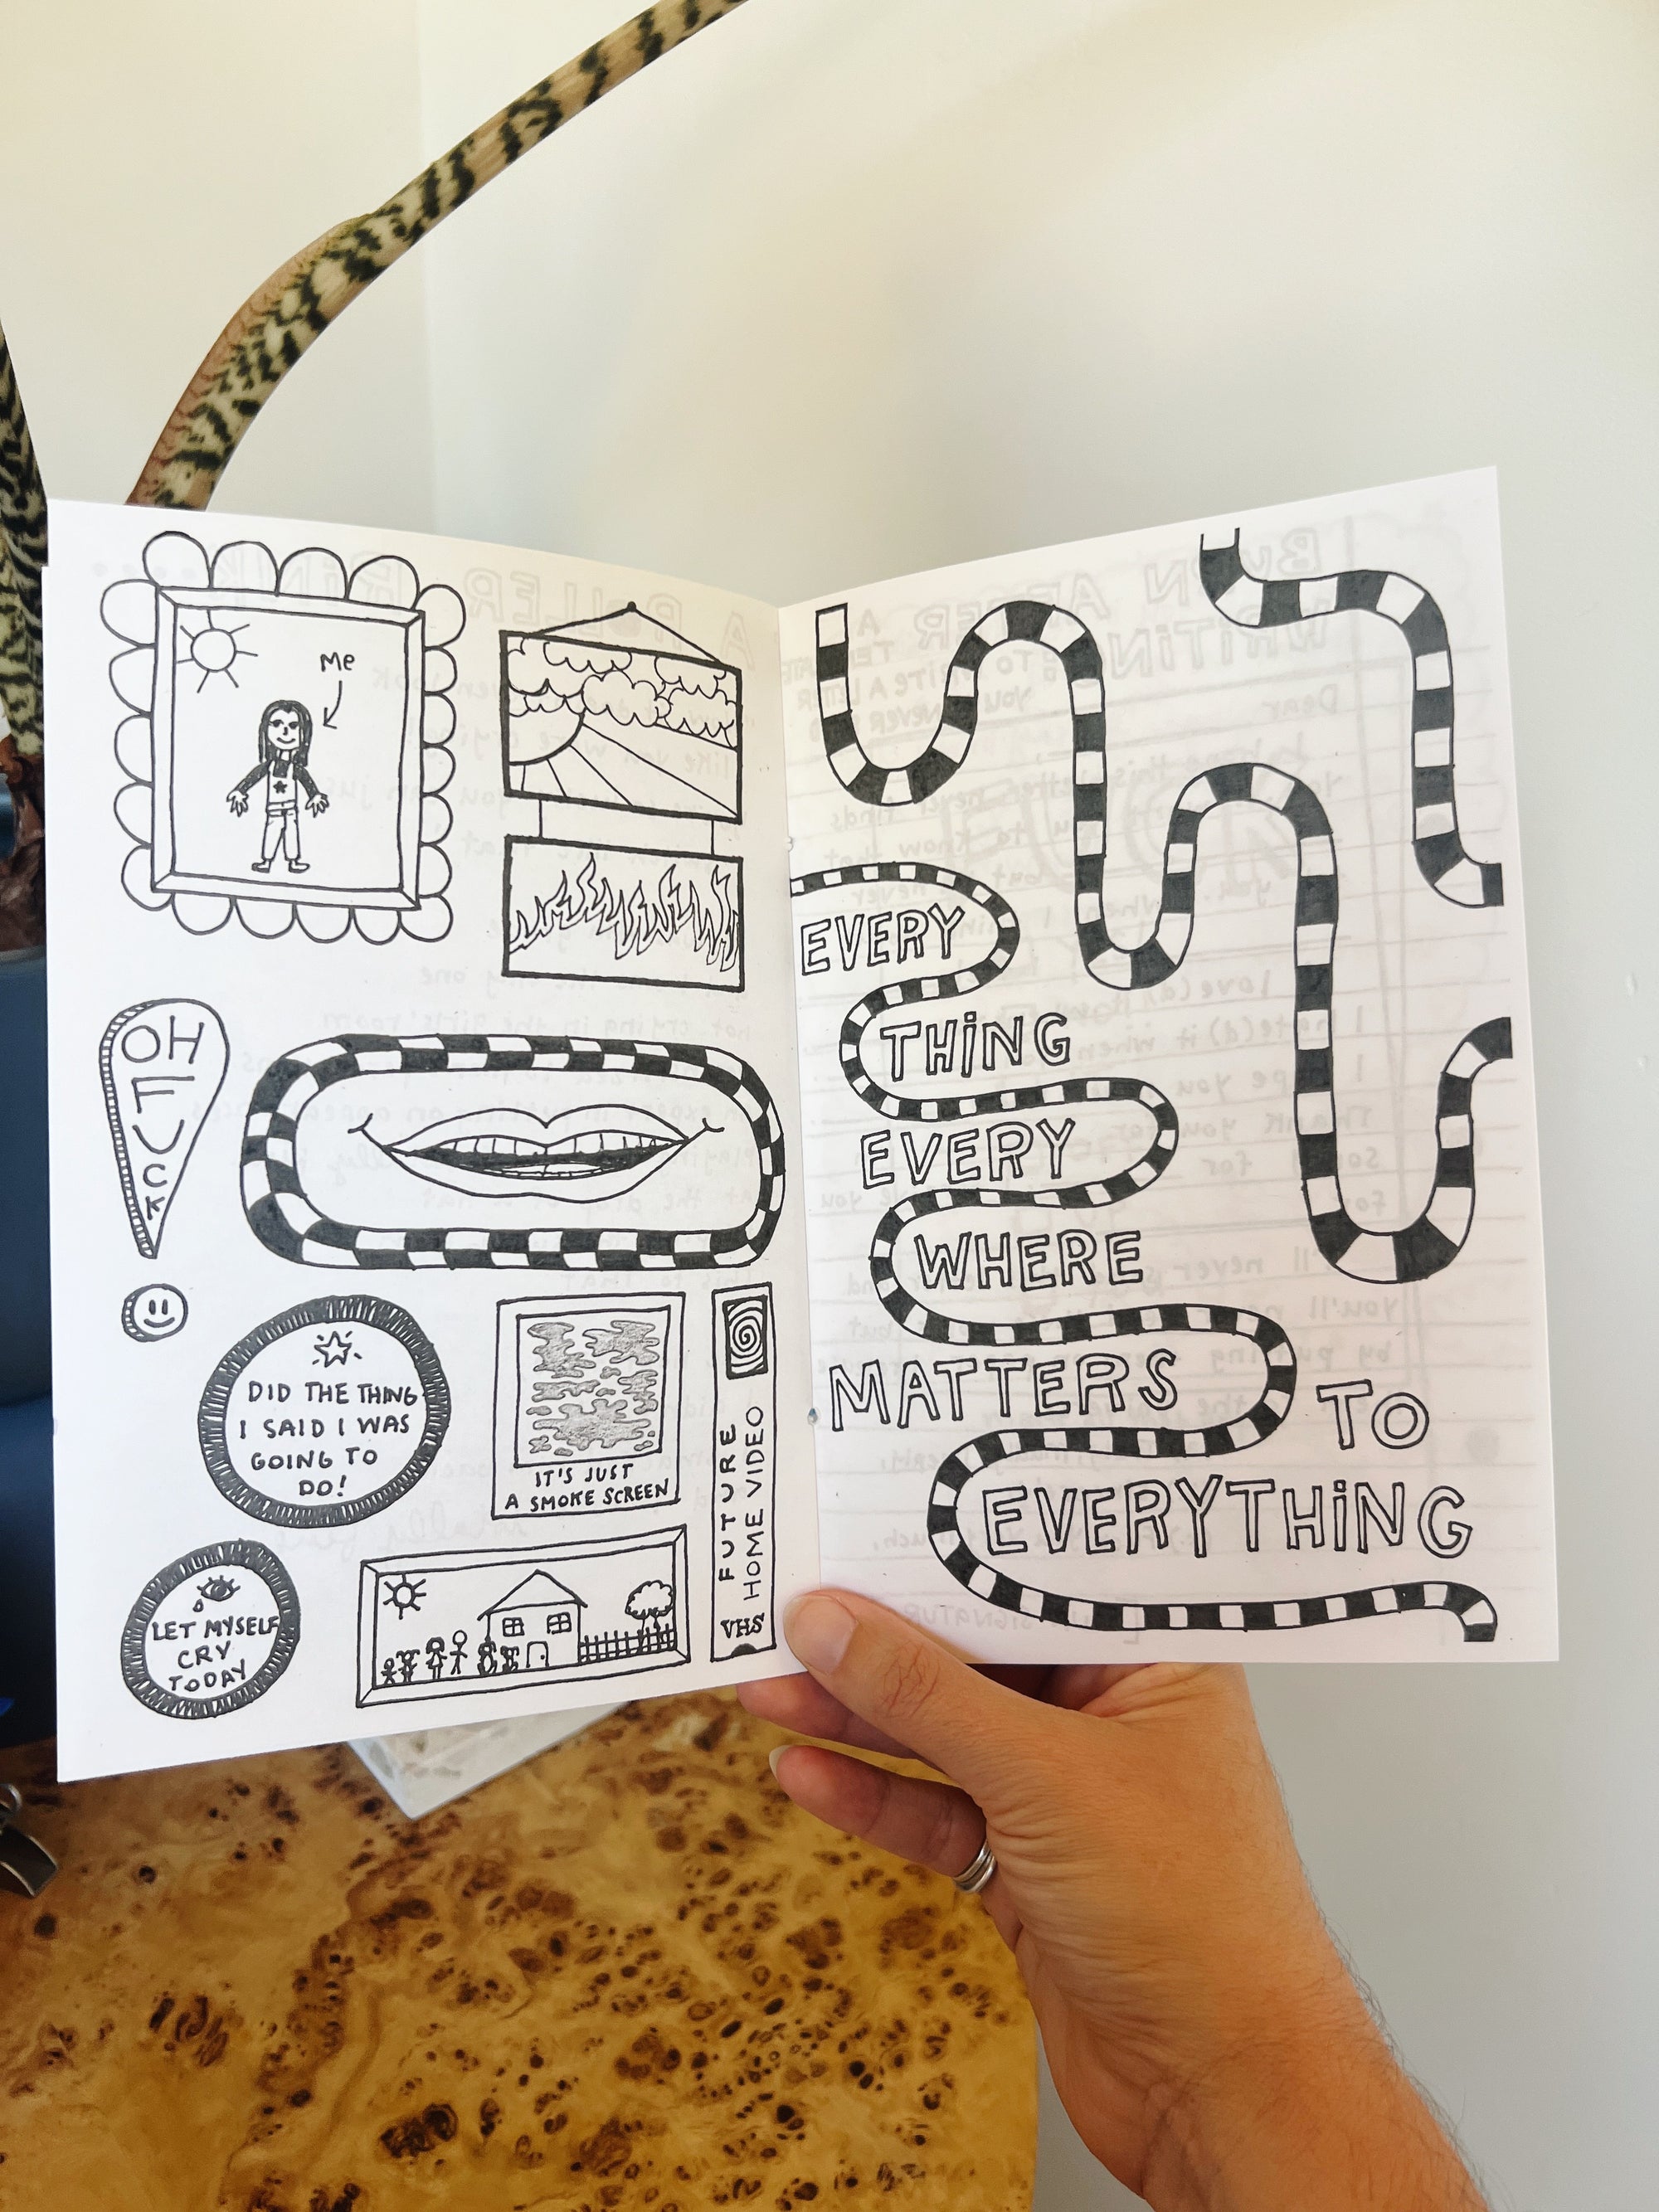 Me
OH
F
U
C
K
DID THE THING
I SAID I WAS
GOING TO
DO!
IT'S JUST
A SMOKE SCREEN
FUTURE
HOME VIDEO
VHS
LET MYSELF
CRY
TODAY
EVERY
THING
EVERY
WHERE
MATTERS
TO
EVERYTHING